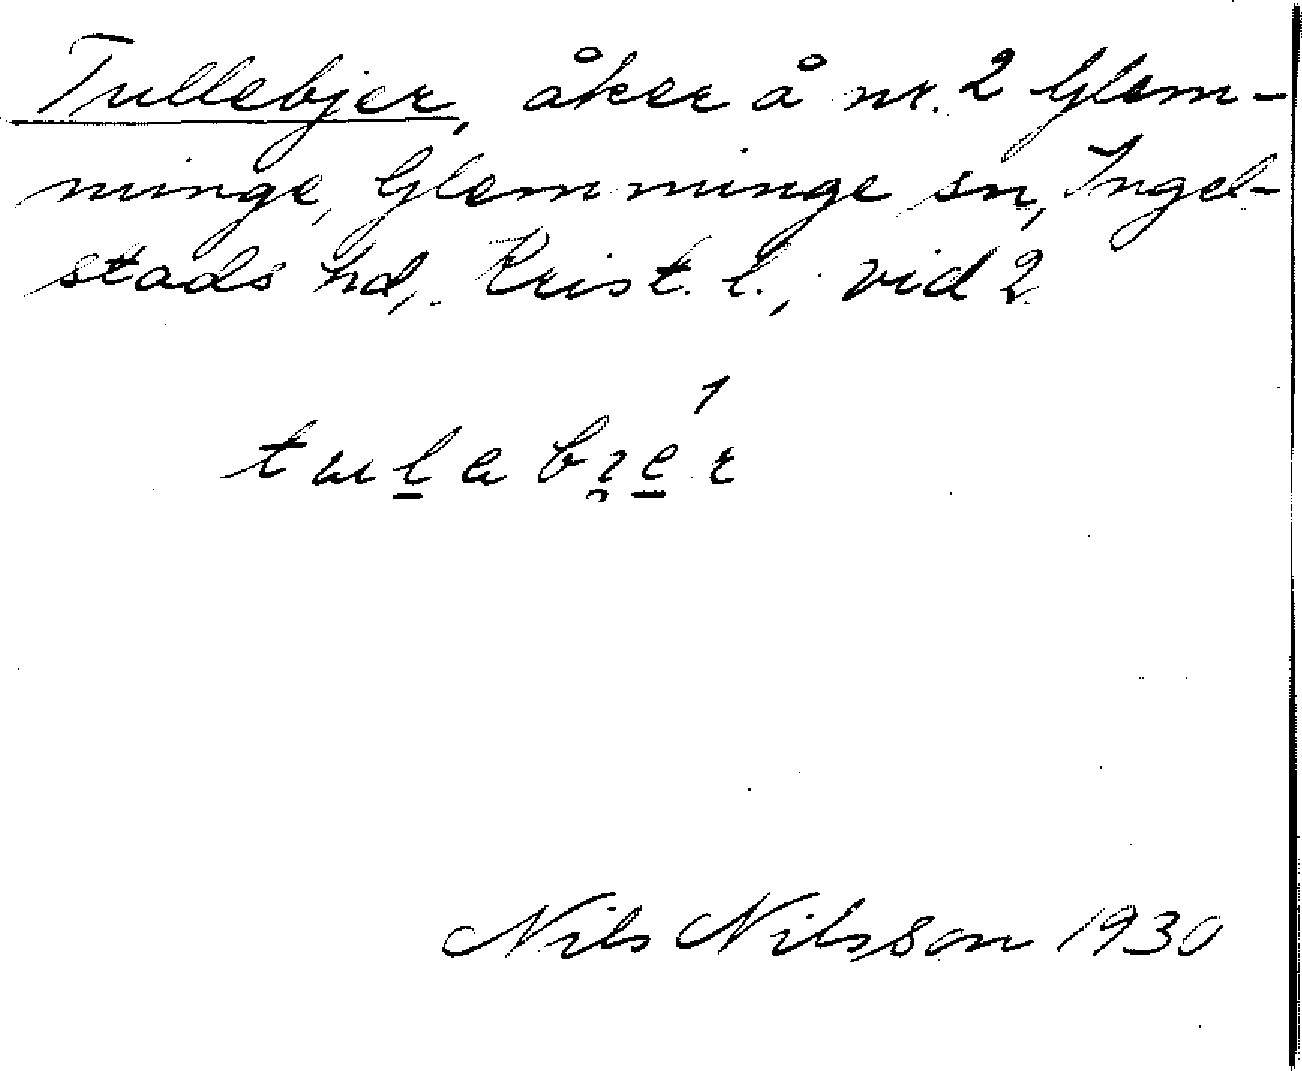 Tullebjer, åker å nr. 2 Glem-
minge, Glemminge sn, Ingel-
stads hd, Krist. l., vid 2
tul̲abi̯e̲ŕ
Nils Nilsson 1930